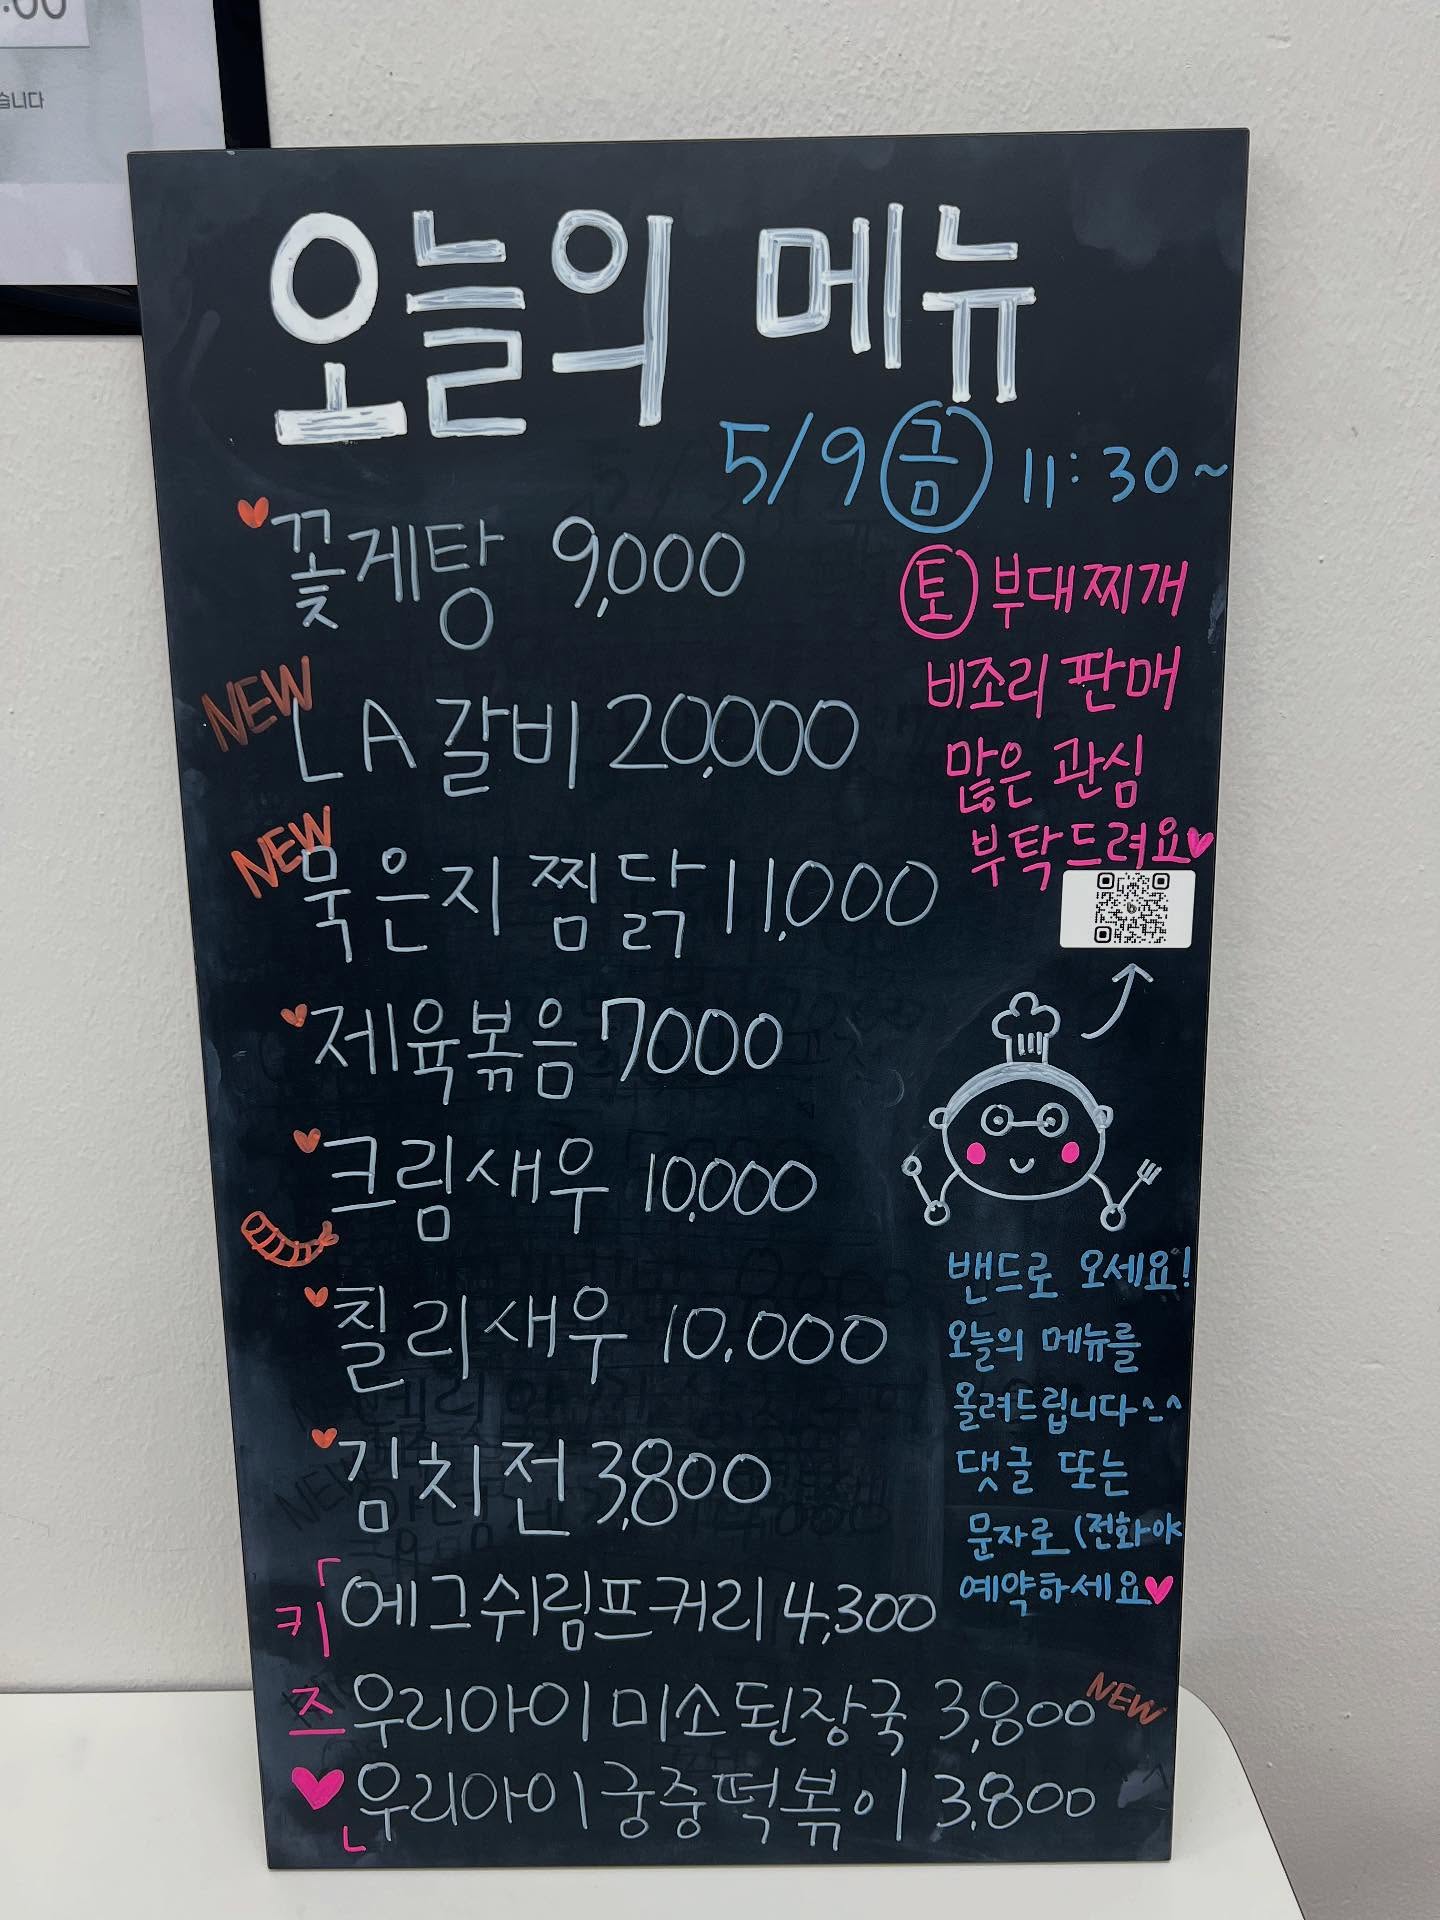 습니다
오늘의 메뉴
5/9 금 11:30~
꽃게탕 9,000
NEW
LA갈비 20,000
NEW
묵은지 찜닭 11,000
제육볶음 7000
크림새우 10,000
칠리새우 10,000
김치전 3,800
키즈
에그쉬림프커리 4,300
우리아이 미소된장국 3,800 NEW
우리아이 궁중떡볶이 3,800
토 부대찌개
비조리 판매
많은 관심
부탁드려요
밴드로 오세요!
오늘의 메뉴를
올려드립니다^^
댓글 또는
문자로 (전화x)
예약하세요